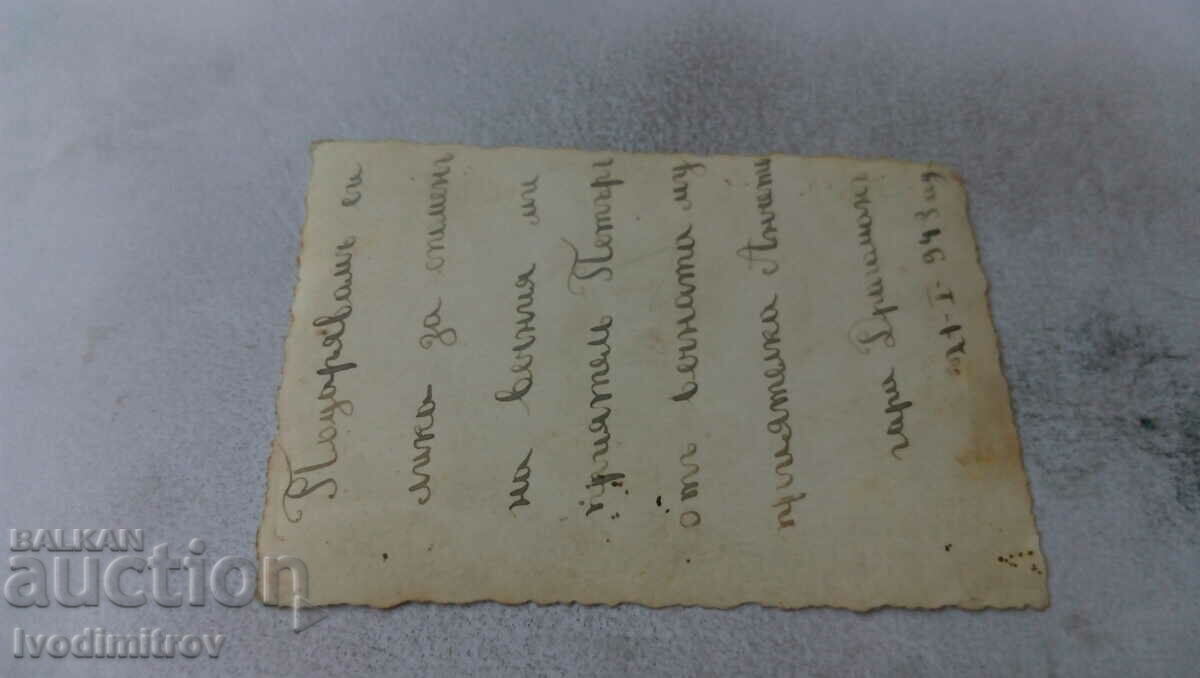 Подорявамъ си
лика за споменъ
на вечния ми
приятель Петъръ
отъ вечната му
приятелка Анчети
гара Драгоманъ
21-I-943 год.
BALKAN
auction
Ivodimitrov